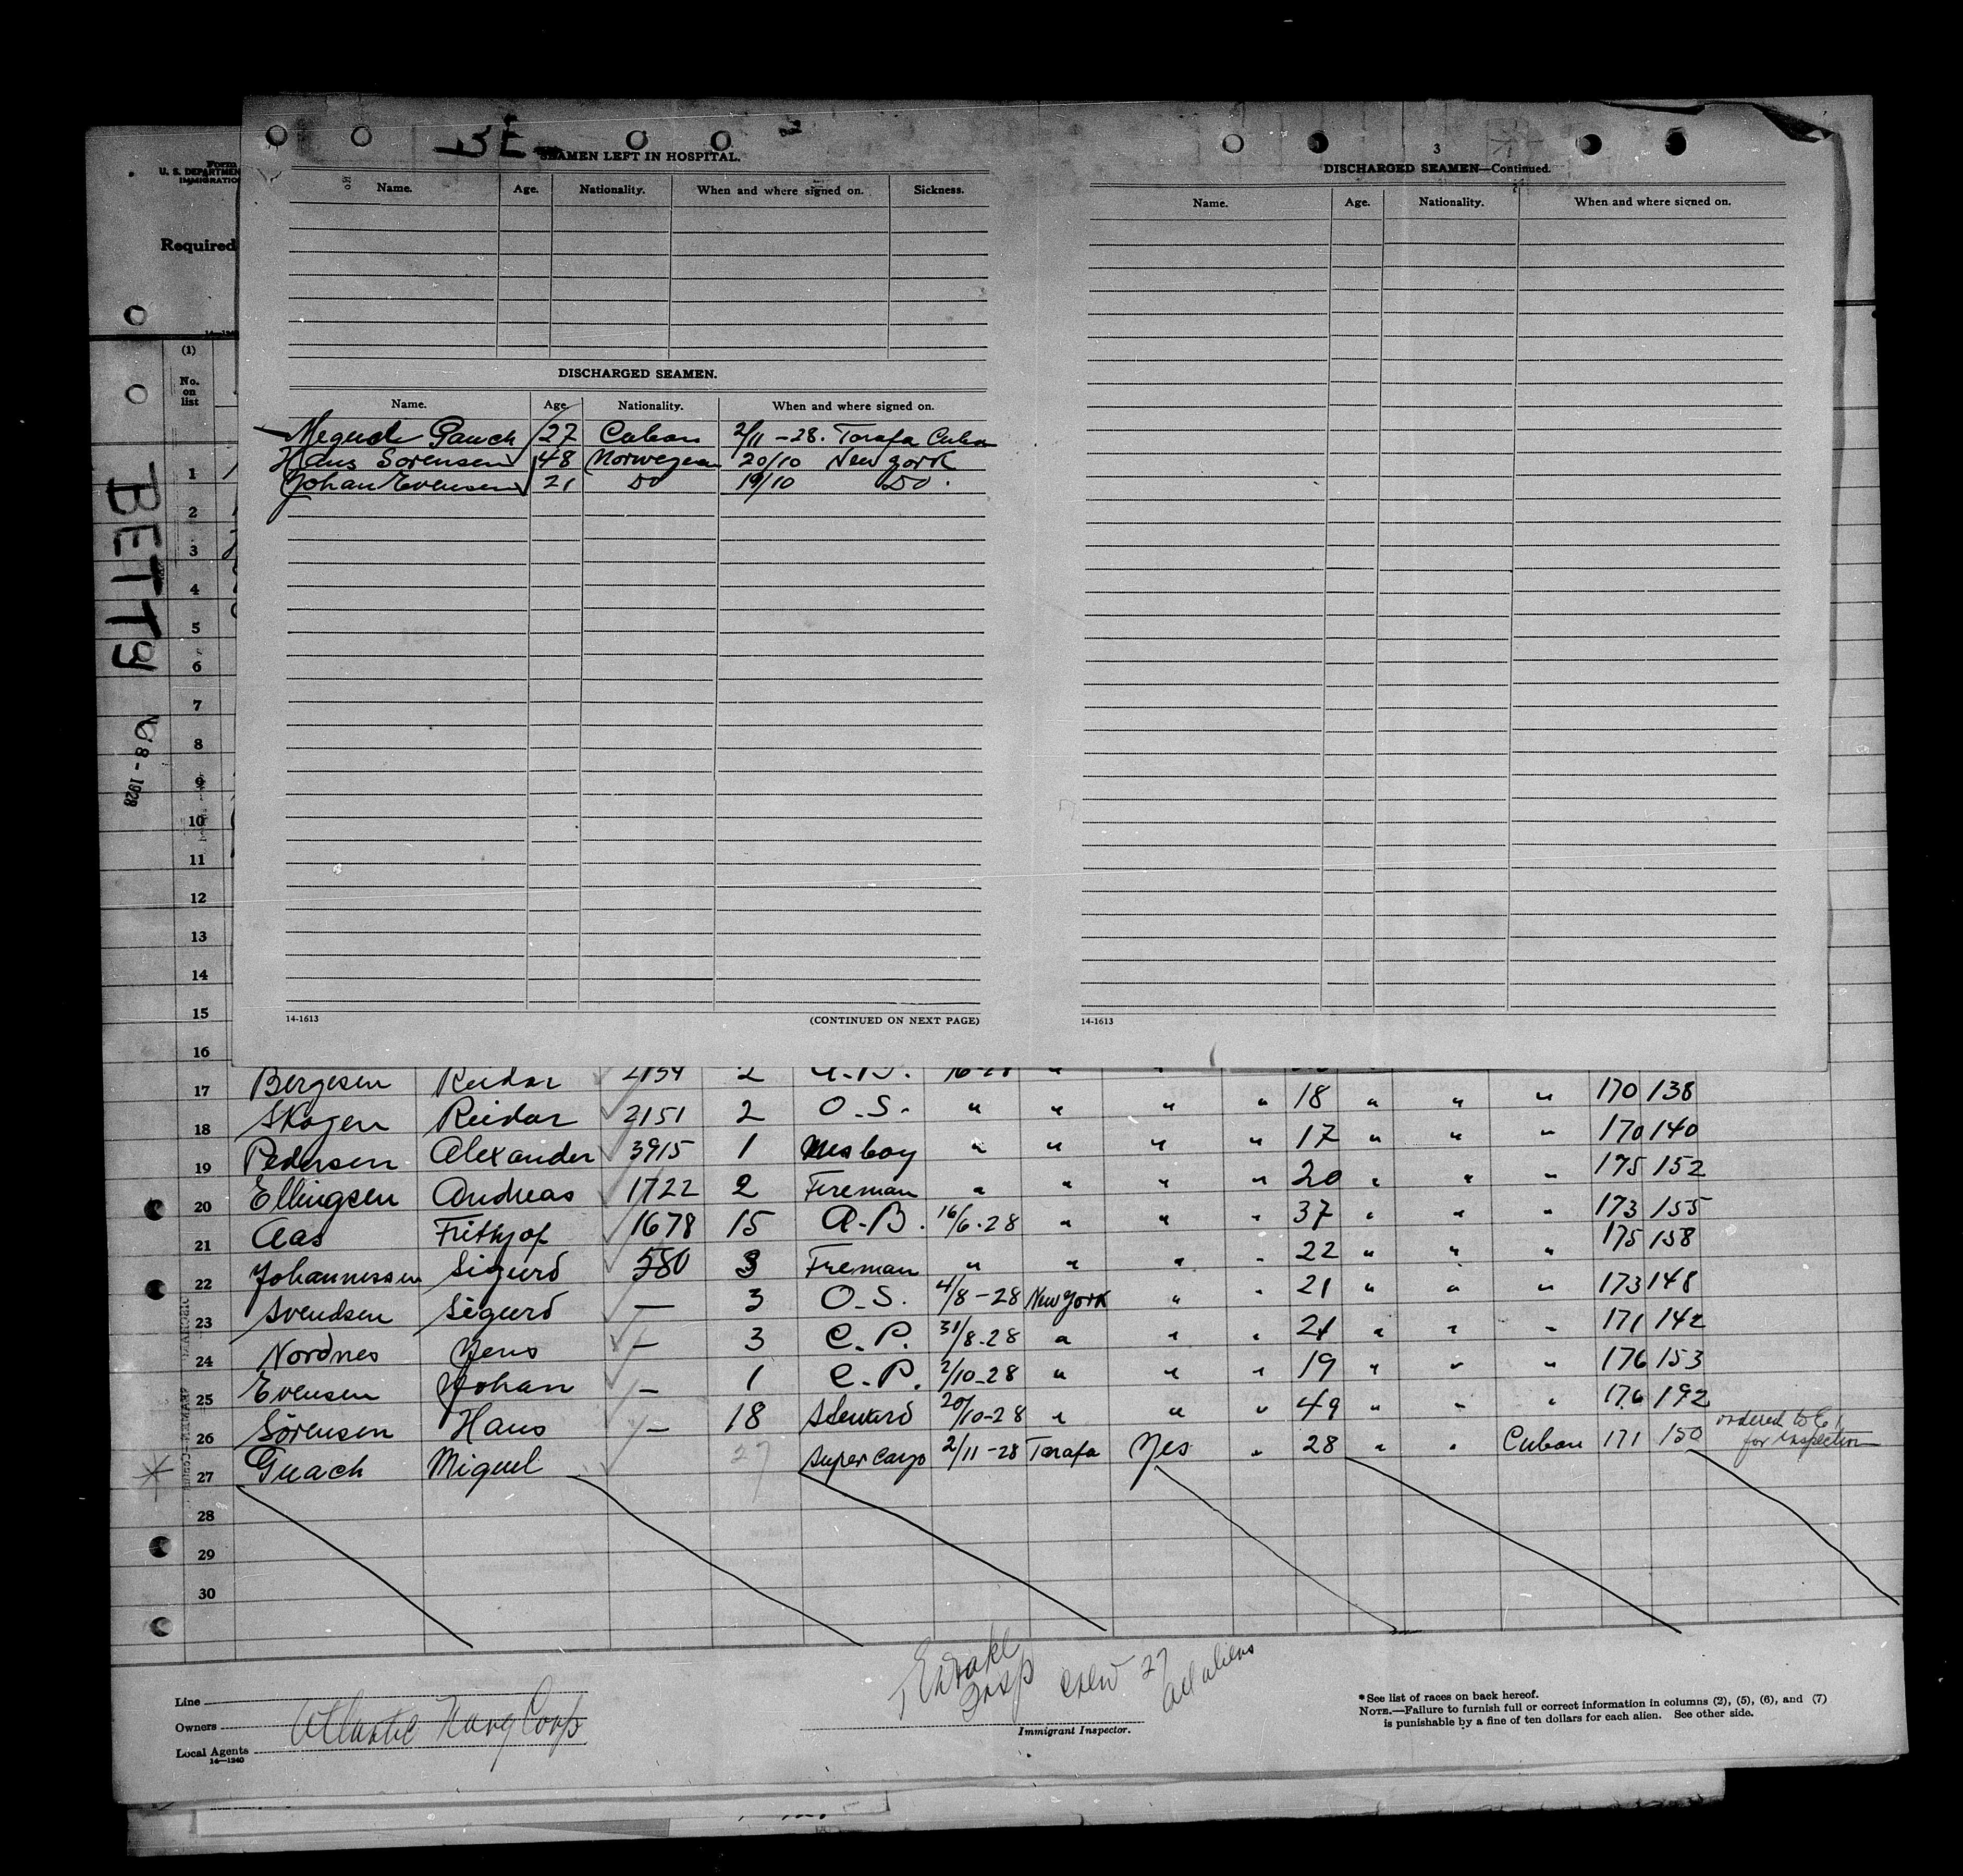 BE
SEAMEN LEFT IN HOSPITAL.
Name. Age. Nationality. When and where signed on. Sickness.
DISCHARGED SEAMEN.
Name. Age. Nationality. When and where signed on.
27 Cuban 2/11 - 28. Tarafa Cuba
Hans Sorensen 48 Norwegean 20/10 New york
Johan Evensen 21 Do 19/10 Do.
14-1613 (CONTINUED ON NEXT PAGE)
3
DISCHARGED SEAMEN—Continued.
Name. Age. Nationality. When and where signed on.
14-1613
Form
U. S. DEPARTMEN
IMMIGRATIO
Required
(1)
No. on list
BETTy
8 - 1928
1
2
3
4
5
6
7
8
9
10
11
12
13
14
15
16
17 Bergesen Reidar 2154 2 A.B. 16 28 " " "
18 Skogen Reidar 2151 2 O.S. " " " " 18 " " " 170 138
19 Pedersen Alexander 3915 1 Mesboy " " " " 17 " " " 170 140
20 Ellingsen Andreas 1722 2 Fireman " " " " 20 " " " 175 152
21 Aas Frithjof 1678 15 A.B. 16/6-28 " " " 37 " " " 173 155
22 Johannessen Sigurd 580 3 Fireman " " " " 22 " " " 175 158
23 Svendsen Sigurd — 3 O.S. 4/8-28 New york " " 21 " " " 173 148
24 Nordnes Jens — 3 C.P. 31/8-28 " " " 21 " " " 171 142
25 Evensen Johan — 1 C.P. 2/10-28 " " " 19 " " " 176 153
26 Sörensen Hans — 18 Steward 20/10-28 " " " 49 " " " 176 192
27 Guach Miguel 27 Super Cargo 2/11-28 Tarafa Yes " 28 " " Cuban 171 150 ordered to E I for inspection
28
29
30
Line
Owners
Local Agents Atlantic Navg Corp
14—1240
Insp crew 27 all aliens
Immigrant Inspector.
*See list of races on back hereof.
NOTE.—Failure to furnish full or correct information in columns (2), (5), (6), and (7)
is punishable by a fine of ten dollars for each alien. See other side.